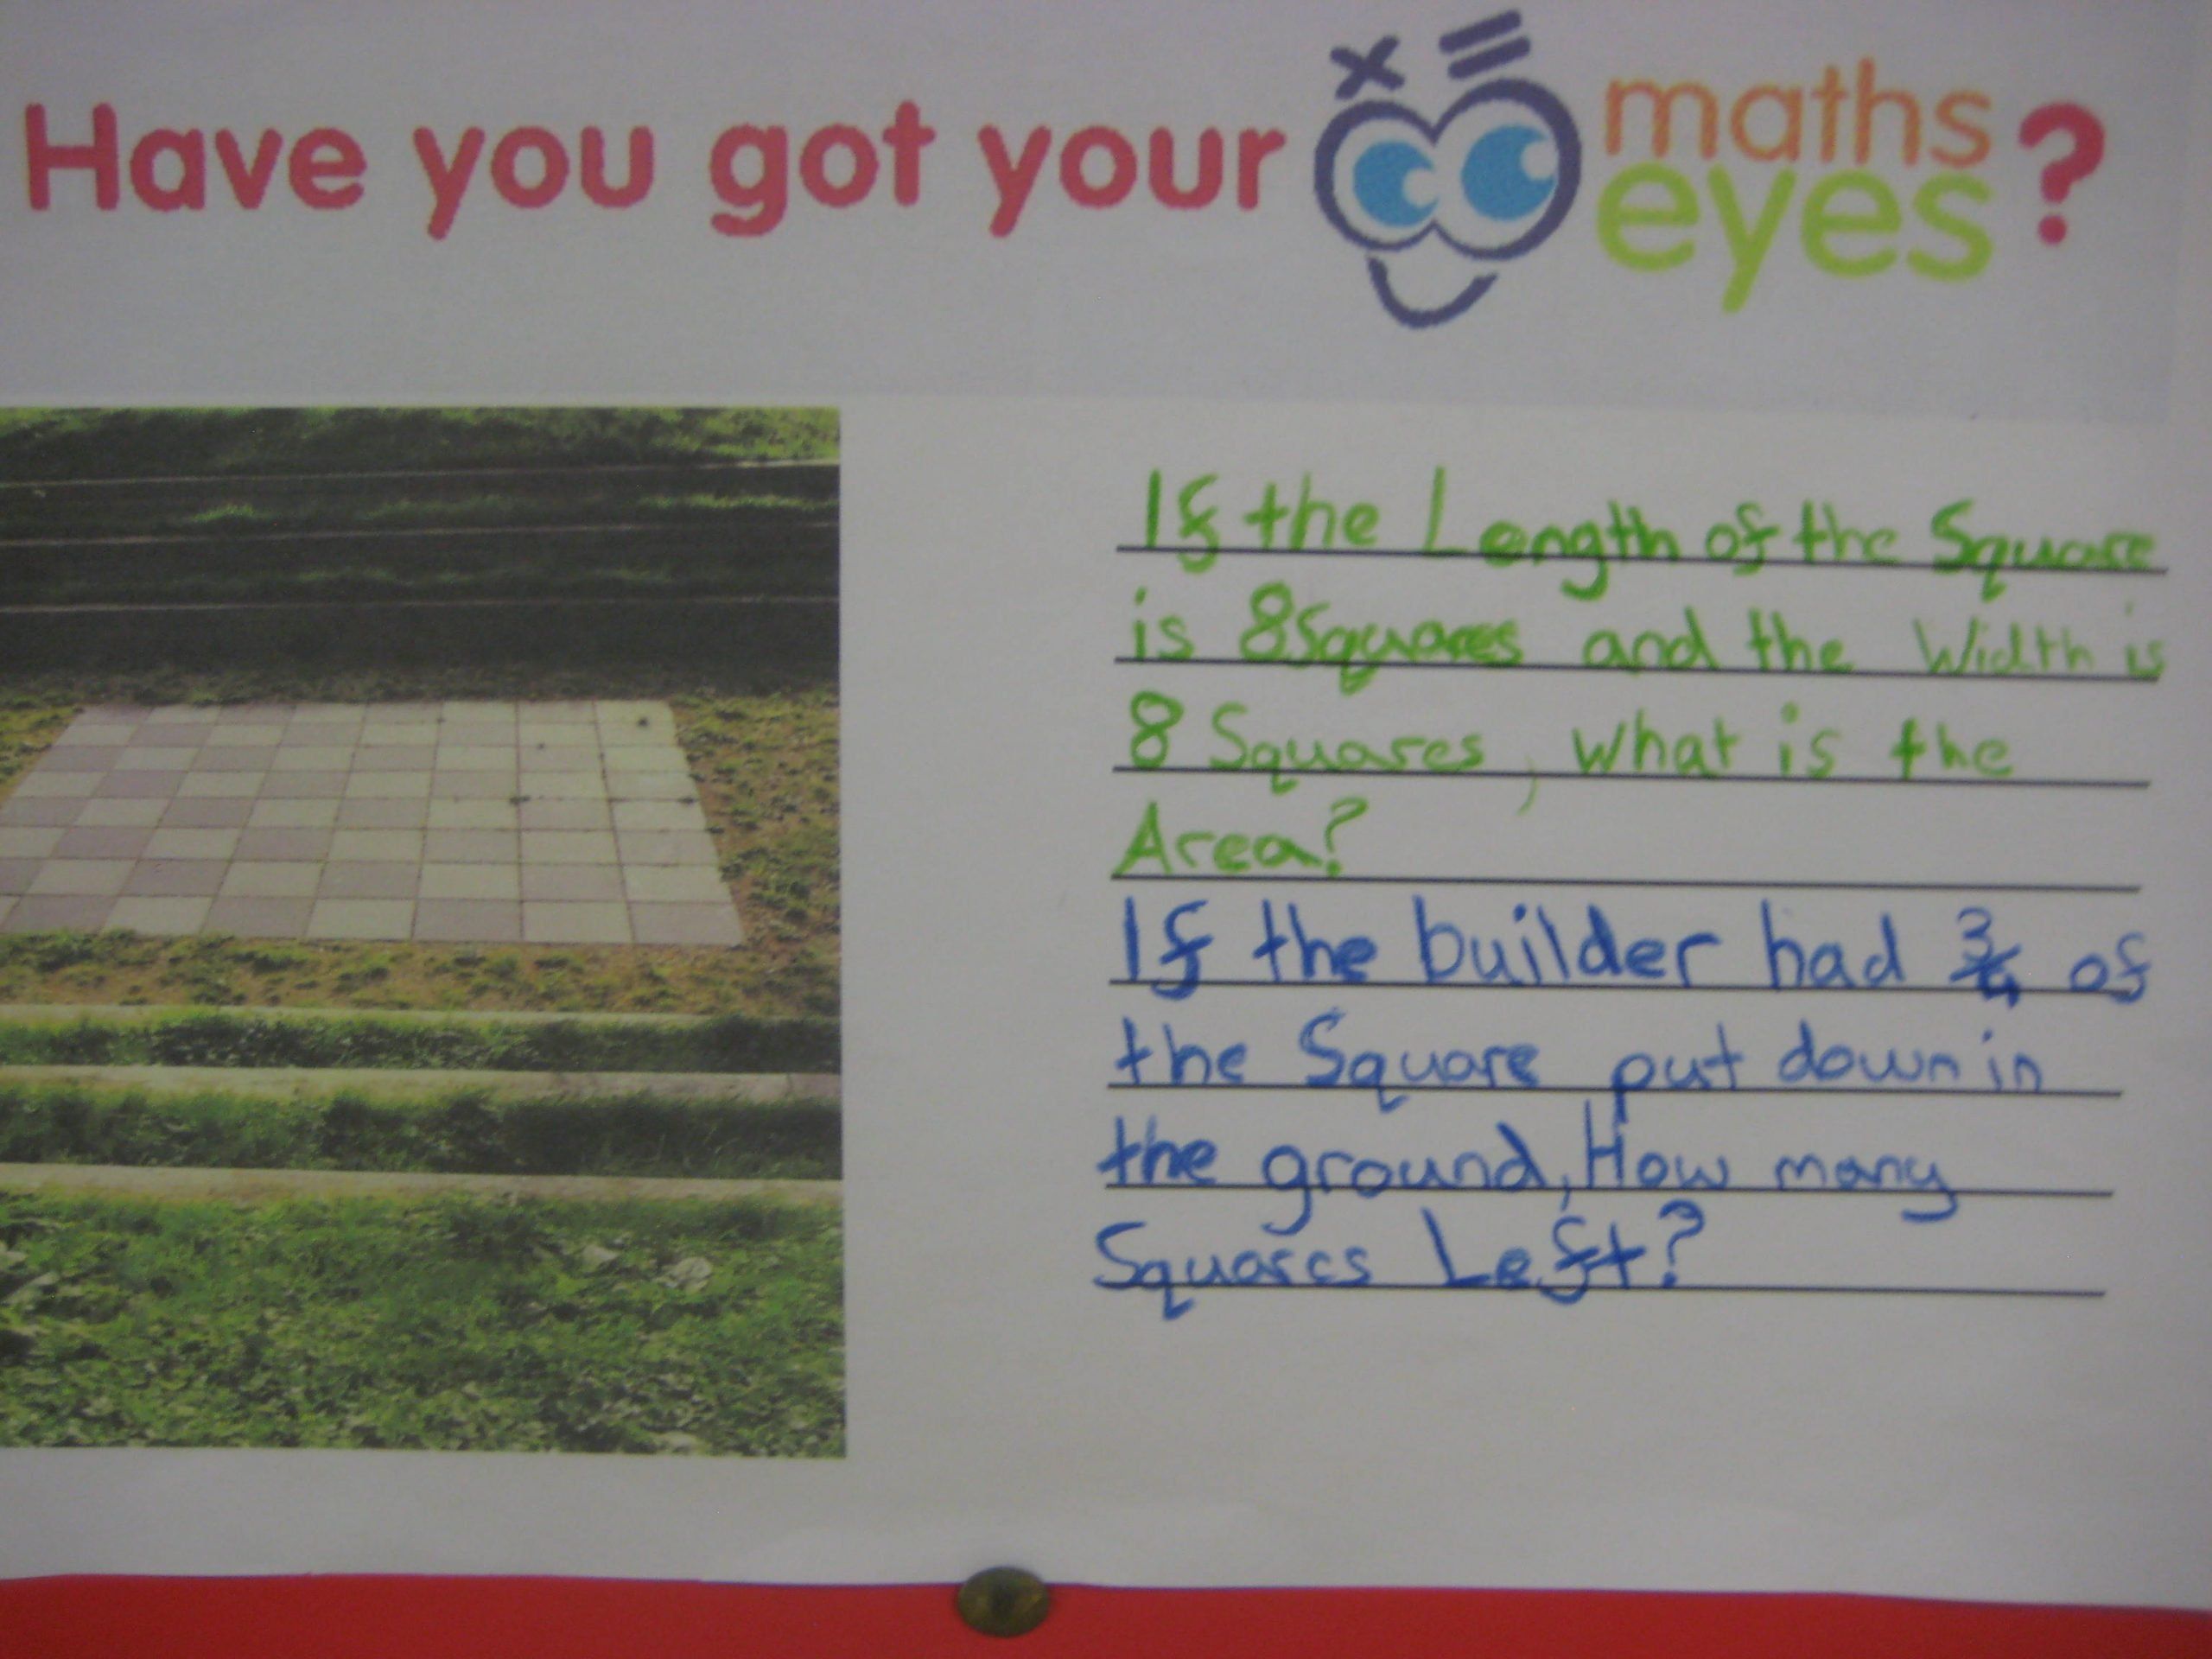 Have you got your maths eyes?
If the Length of the Square
is 8 Squares and the Width is
8 Squares, What is the
Area?
If the builder had 3/4 of
the Square put down in
the ground, How many
Squares Left?